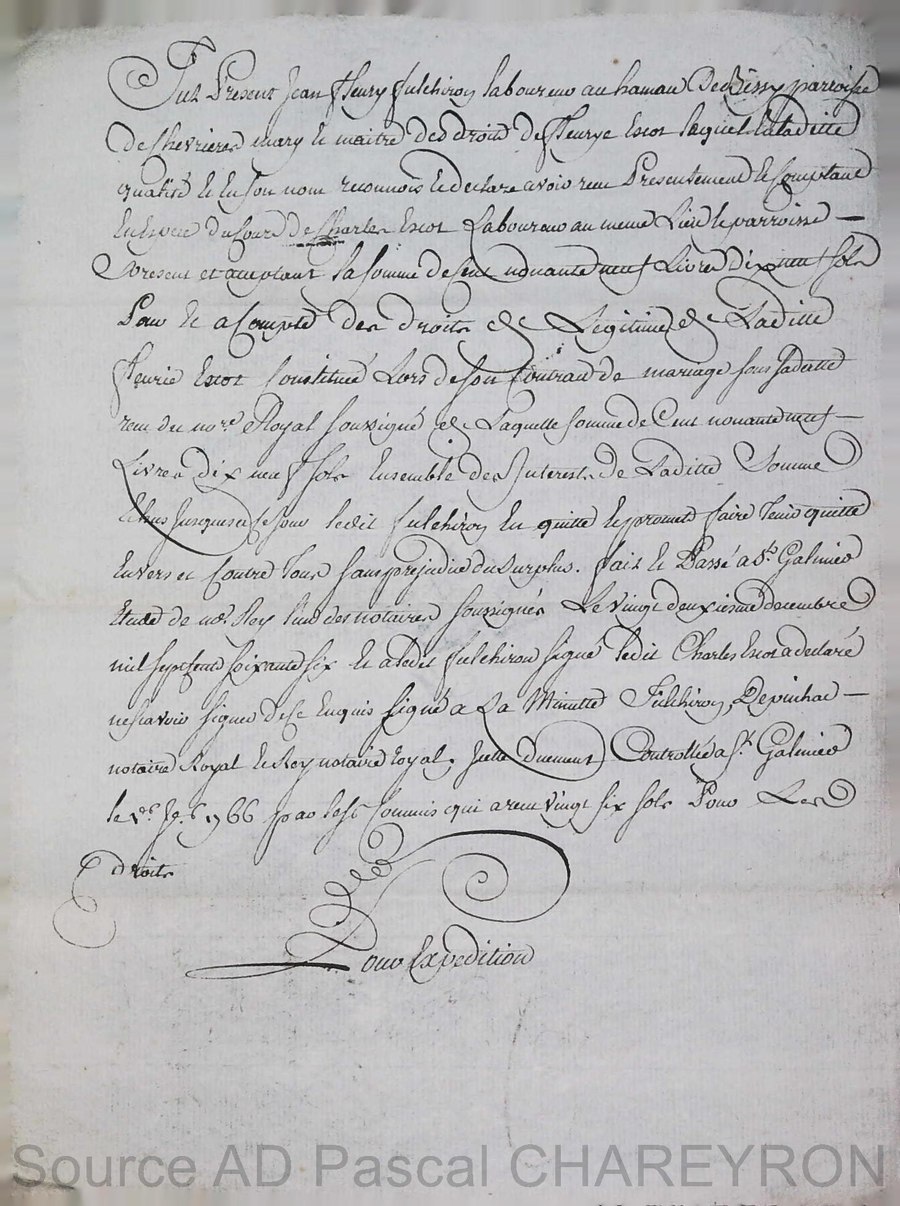 Fut Present Jean fleury fulchiron laboureur au hameau De parroisse
de Chevrieres mary et maitre des droits de fleurye Escot lequel laditte
qualité et En son nom reconnois et declare avoir reçu Presentement et Comptant
En Espece du Cours de Charles Escot Laboureur au meme Lieu et parroisse —
present et acceptant la somme de Cent nonante neuf Livres dix neuf sols
Pour et a Compte des droits de Légitime de Laditte
fleurie Escot Constitué Lors de Son Contrant de mariage sous sa datte
reçu du nore Royal Soussigné de Laquelle somme de Cent nonante neuf —
Livres dix neuf sols Ensemble des Interests de Laditte Somme
Echus Jusques a Ce Jour ledit fulchiron En quitte et promet faire tenir quitte
Envers et Contre tous sans prejudice du Surplus. fait et Passé a St. Galmier
Etude de me. Rey l'un des notaires soussignés Le vingt deuxieme decembre
mil sept Cent soixante six Et a ledit fulchiron signé ledit Charles Escot a declaré
ne scavoir signer de Ce Enquis signé a La Minutte Fulchiron, Depinhac —
notaire Royal et Rey notaire Royal, Dument Controllé a St. Galmier
le 1766 par Commis qui a reçu vingt six sols Pour Les
droits
Pour Expedition
Source AD Pascal CHAREYRON